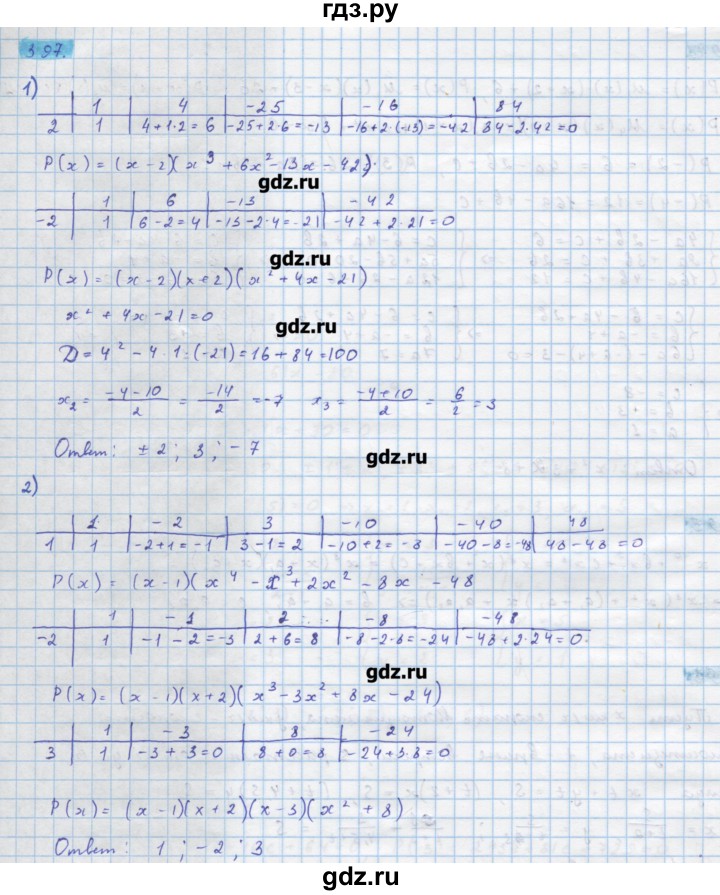 гдз.ру
397.
1)
1 4 -25 -16 84
2 1 4+1·2=6 -25+2·6=-13 -16+2·(-13)=-42 84-2·42=0
P(x)=(x-2)(x³+6x²-13x-42)
гдз.ру
1 6 -13 -42
-2 1 6-2=4 -13-2·4=-21 -42+2·21=0
гдз.ру
P(x)=(x-2)(x+2)(x²+4x-21)
x²+4x-21=0
гдз.ру
D=4²-4·1·(-21)=16+84=100
x₂=(-4-10)/2=-14/2=-7 x₃=(-4+10)/2=6/2=3
Ответ: ±2; 3; -7
гдз.ру
2)
1 -2 3 -10 -40 48
1 1 -2+1=-1 3-1=2 -10+2=-8 -40-8=-48 48-48=0
P(x)=(x-1)(x⁴-x³+2x²-8x-48
1 -1 2 -8 -48
-2 1 -1-2=-3 2+6=8 -8-2·8=-24 -48+2·24=0
гдз.ру
P(x)=(x-1)(x+2)(x³-3x²+8x-24)
1 -3 8 -24
3 1 -3+3=0 8+0=8 -24+3·8=0
P(x)=(x-1)(x+2)(x-3)(x²+8)
Ответ: 1; -2; 3
гдз.ру